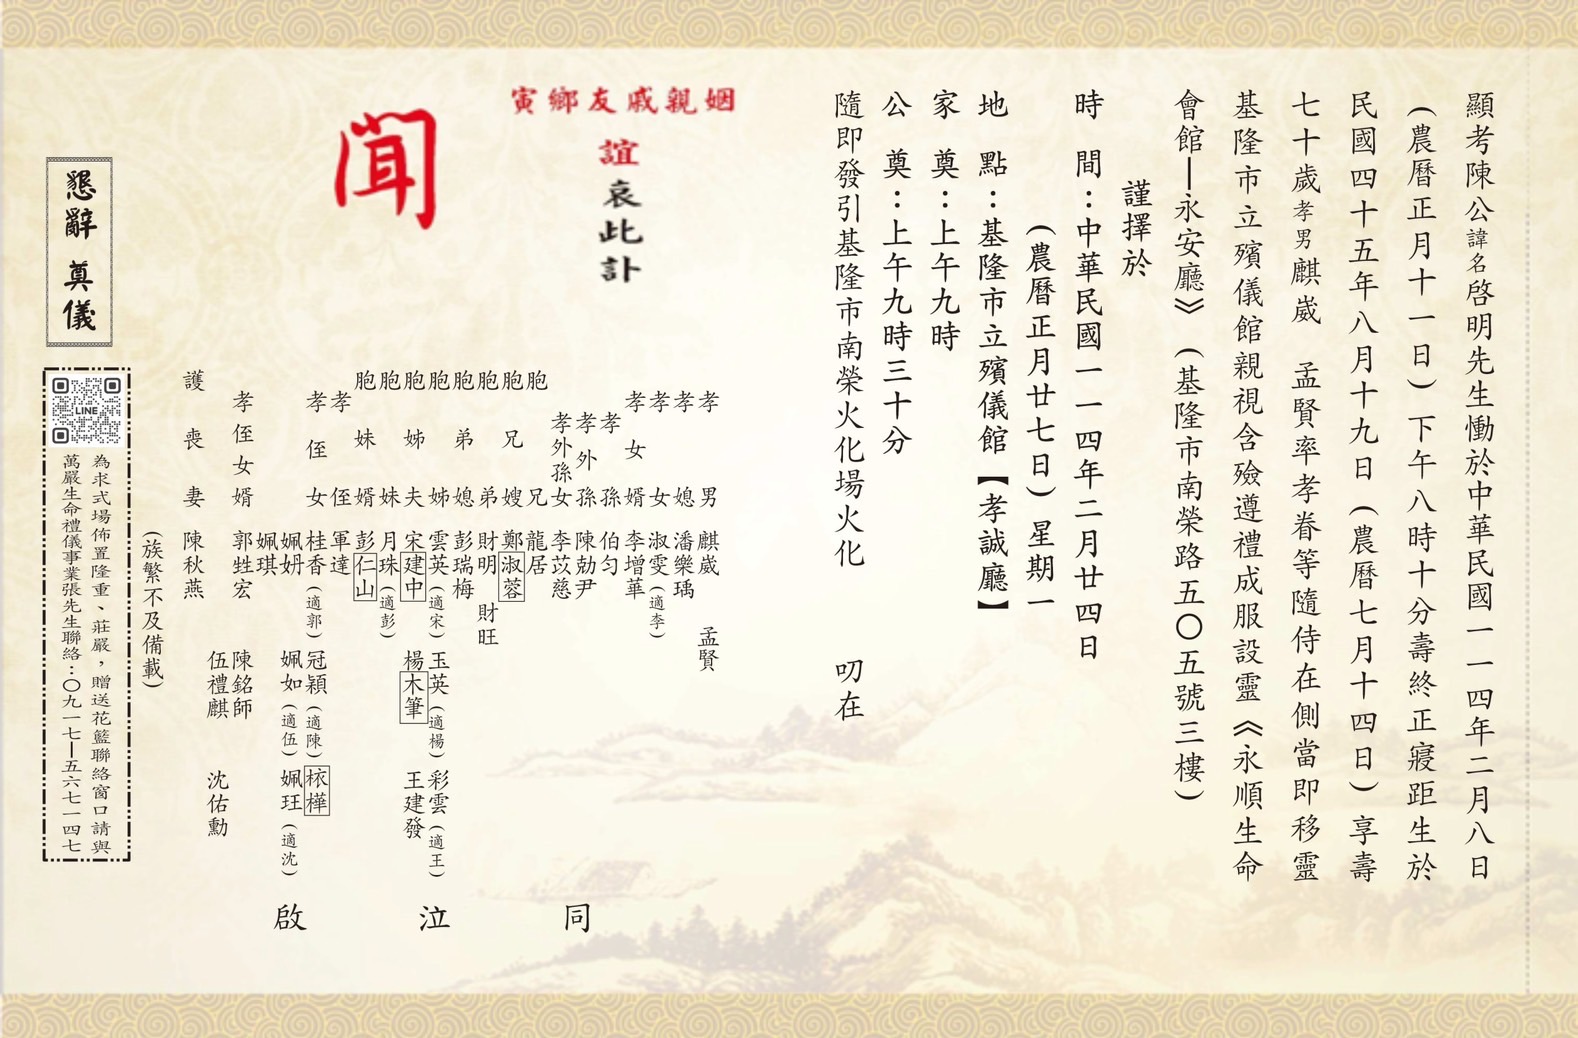 顯考陳公諱名啓明先生慟於中華民國一一四年二月八日
(農曆正月十一日)下午八時十分壽終正寢距生於
民國四十五年八月十九日(農曆七月十四日)享壽
七十歲孝男麒崴 孟賢率孝眷等隨侍在側當即移靈
基隆市立殯儀館親視含殮遵禮成服設靈《永順生命
會館—永安廳》(基隆市南榮路五〇五號三樓)
謹擇於
時 間:中華民國一一四年二月廿四日
(農曆正月廿七日)星期一
地 點:基隆市立殯儀館【孝誠廳】
家 奠:上午九時
公 奠:上午九時三十分
隨即發引基隆市南榮火化場火化 叨在
姻親戚友鄉寅
誼哀此訃
聞
孝男 麒崴 孟賢
孝媳 潘樂瑀
孝女 淑雯(適李)
孝女婿 李增華
孝孫 伯勻
孝外孫 陳勍尹
孝外孫女 李苡慈
胞兄 龍居
胞兄嫂 鄭淑蓉
胞弟 財明 財旺
胞弟媳 彭瑞梅
胞姊 雲英(適宋) 玉英(適楊) 彩雲(適王)
胞姊夫 宋建中 楊木筆 王建發
胞妹 月珠(適彭)
胞妹婿 彭仁山
孝侄 軍達
孝侄女 桂香(適郭) 冠穎(適陳) 椥樺
姵妢 姵如(適伍) 姵玨(適沈)
姵琪
孝侄女婿 郭甡宏 陳銘師
伍禮麒 沈佑勳
護喪妻 陳秋燕
(族繁不及備載)
同泣啟
懇辭 奠儀
LINE
為求式場佈置隆重、莊嚴,贈送花籃聯絡窗口請與
萬嚴生命禮儀事業張先生聯絡:〇九一七—五六七一四七